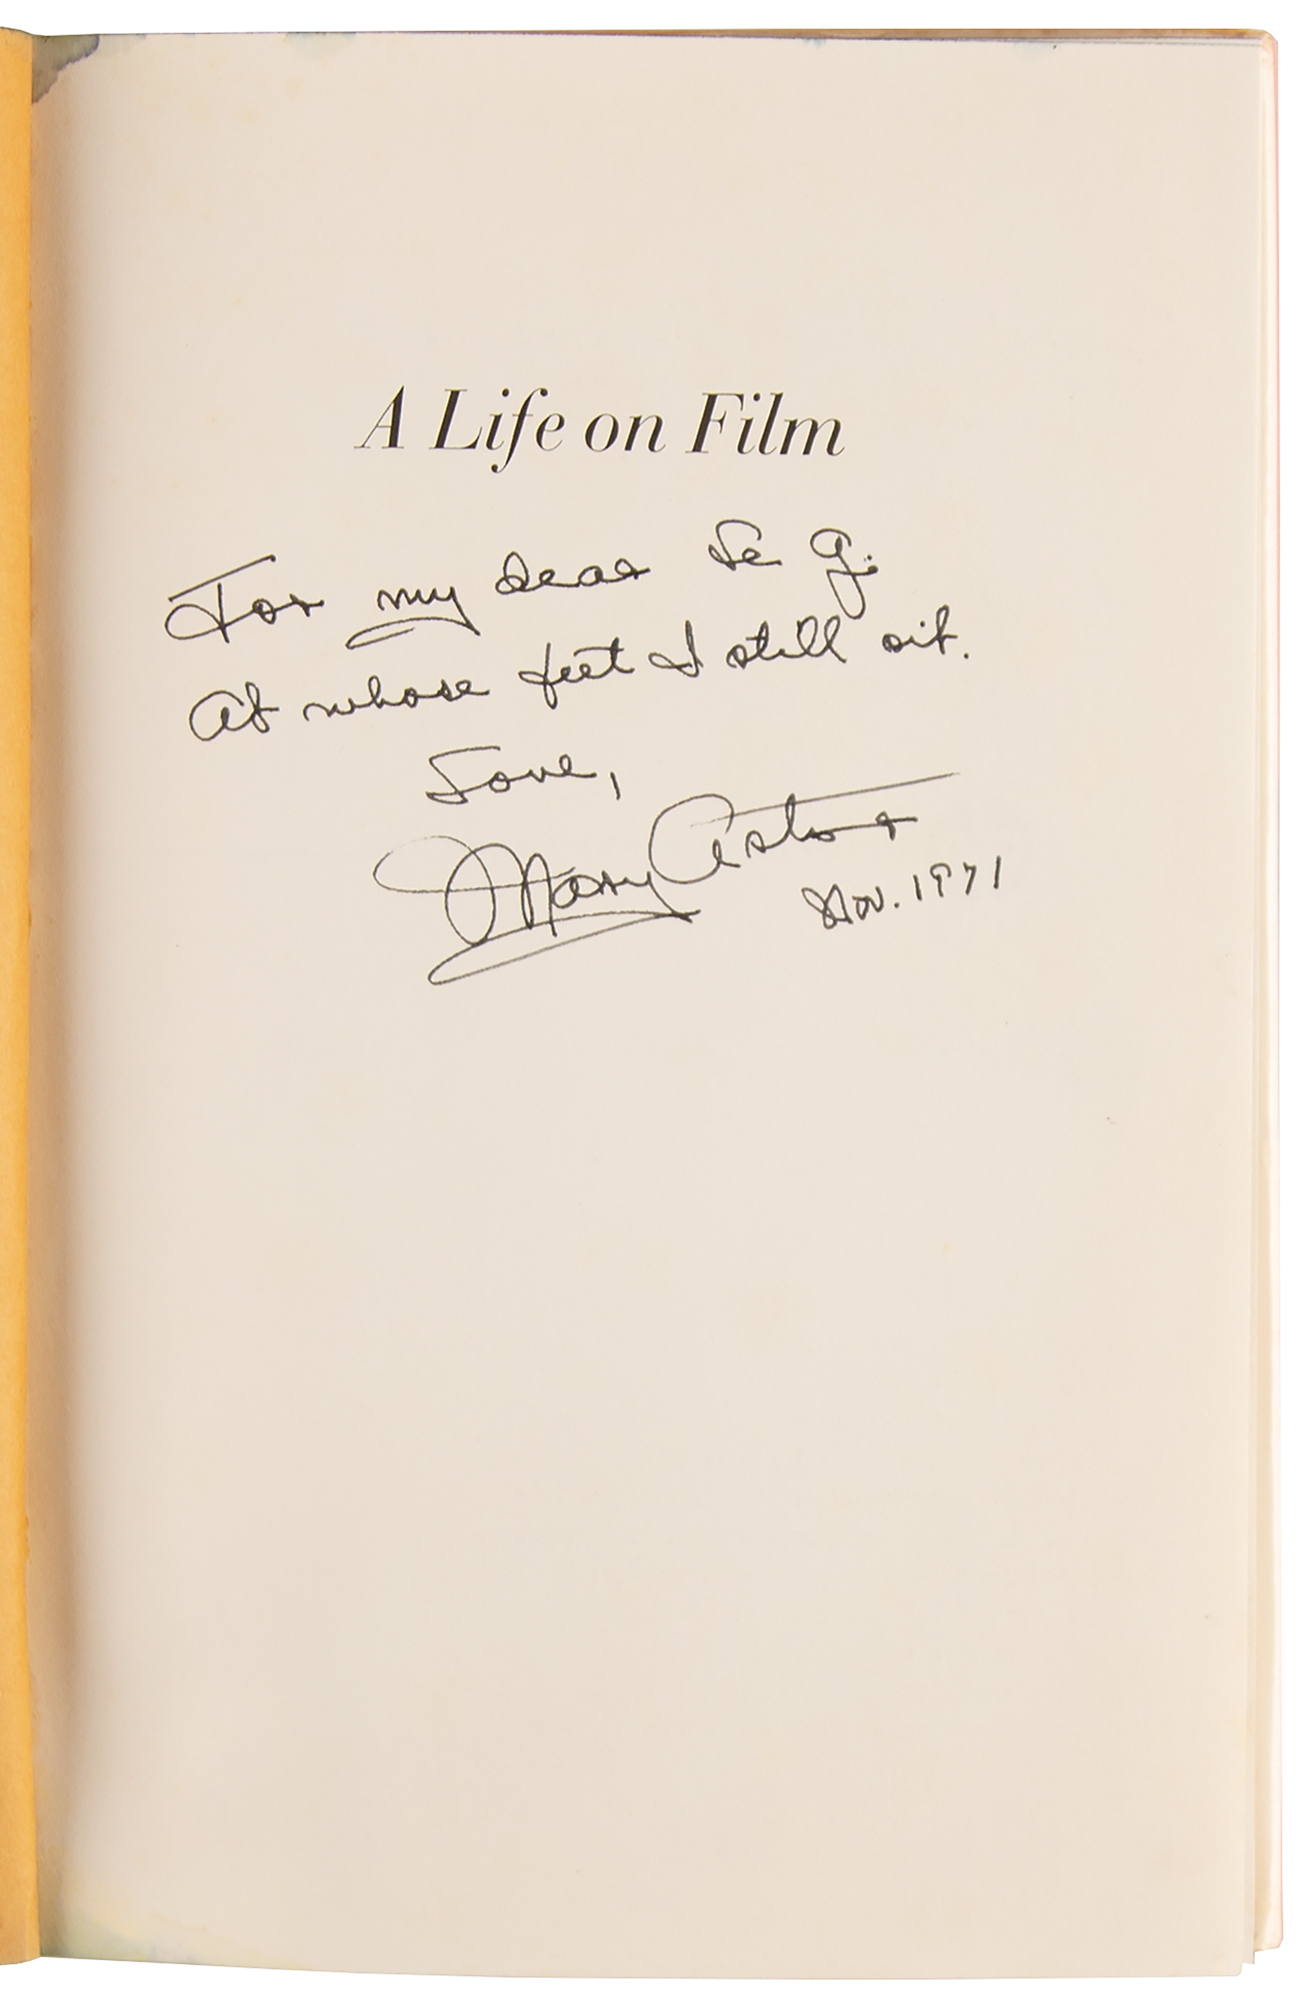 A Life on Film
For my dear Le G.
At whose feet I still sit.
Love,
Mary Astor
Nov. 1971